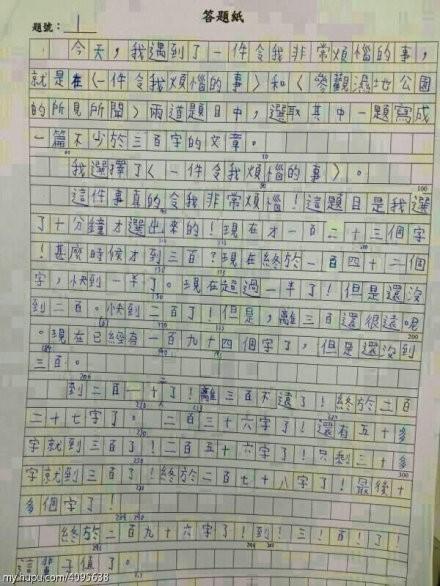 答題紙
題號：1
今天，我遇到了一件令我非常煩惱的事，
就是在〈一件令我煩惱的事〉和〈參觀濕地公園
的所見所聞〉兩道題目中，選取其中一題寫成
一篇不少於三百字的文章。
我選擇了〈一件令我煩惱的事〉。
這件事真的令我非常煩惱！這題目是我選
了十分鐘才選出來的！現在才一百二十三個字
！甚麼時候才到三百？現在終於一百四十二個
字，快到一半了。現在超過一半了！但是還沒
到二百。快到二百了！但是，離三百還很遠。
。現在已經有一百九十四個字了，但是還沒到
三百。
到二百一十了！離三百不遠了！終於二百
二十七字了。二百三十六字了！還有五十多
字就到三百了！二百五十六字了！只剩三十多
字就到三百了！終於二百七十八字了！最後十
多個字了！
終於二百九十六字了！到！三！百！了！
這輩子值了。
my.hupu.com/4095638